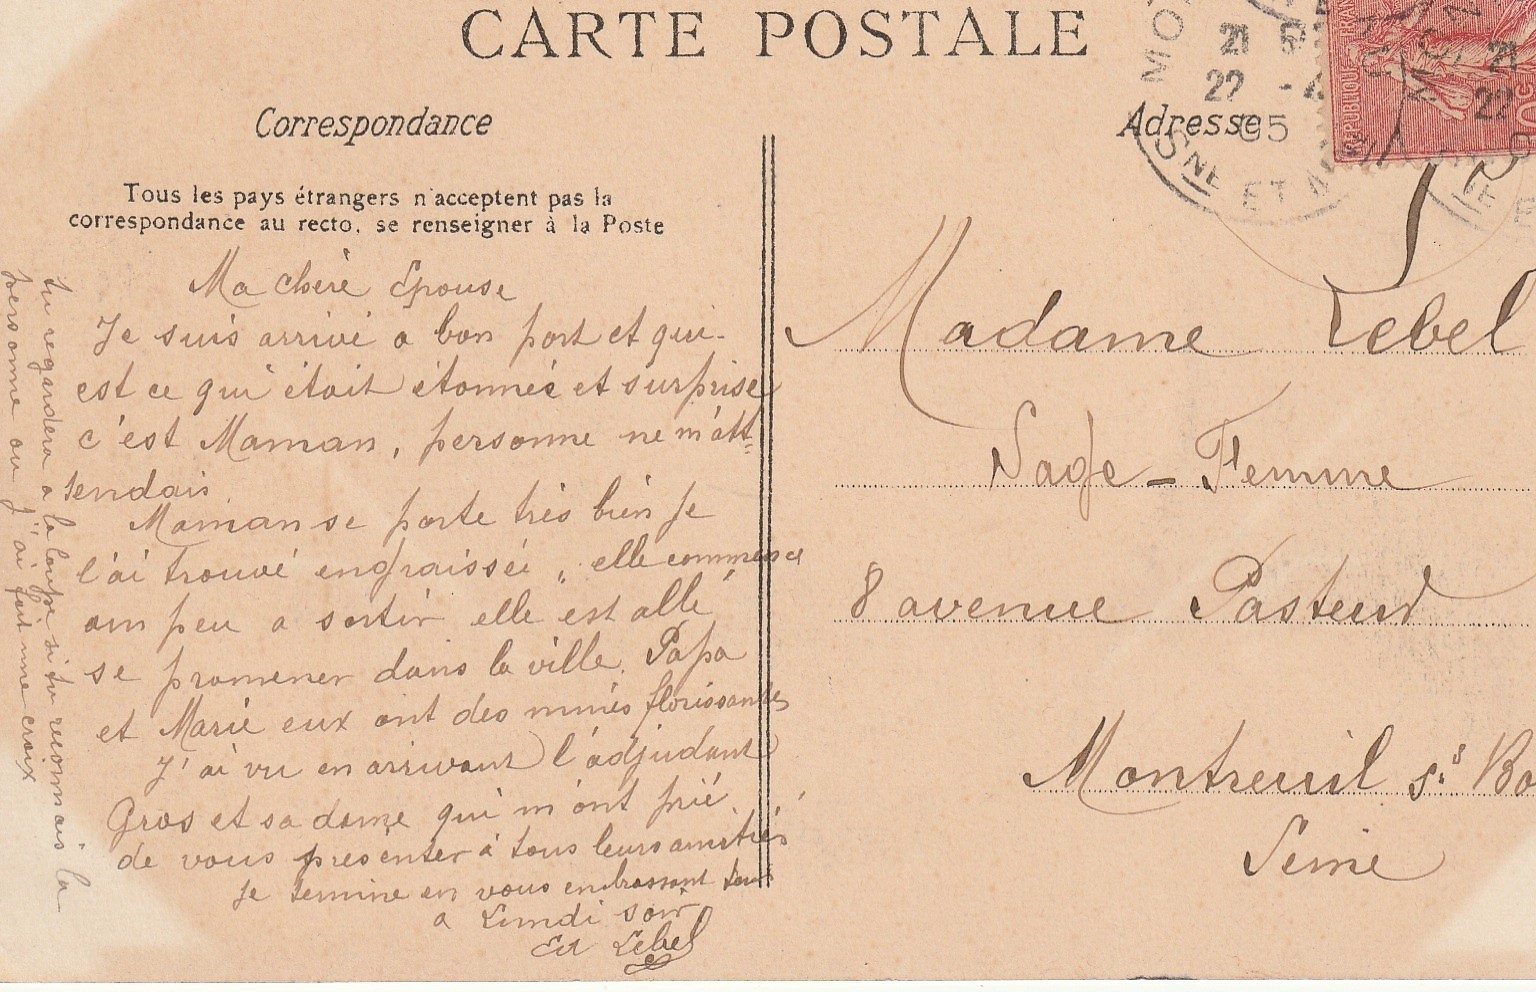 CARTE POSTALE
Correspondance
Tous les pays étrangers n'acceptent pas la
correspondance au recto, se renseigner à la Poste
Ma chère Epouse
Je suis arrivé a bon port et qui-
est ce qui était étonnée et surprise
c'est Maman, personne ne m'att=
tendais.
Maman se porte très bien je
l'ai trouvé engraissée, elle commence
am peu a sortir elle est allé
se promener dans la ville. Papa
et Marie eux ont des mines florissantes
J'ai vu en arrivant l'adjudant
Gros et sa dame qui m'ont prié
de vous présenter à tous leurs amitiés
Je termine en vous embrassant tous
a Lundi soir
Ed Lebel
tu regardera a la loupe si tu reconnais la
personne ou j'ai fait une croix
Adresse
Madame Lebel
Sage-Femme
8 avenue Pasteur
Montreuil s.s Bo
Seine
21
22 - 4
05
SNE ET
RÉPUBLIQUE FRAN
21
22